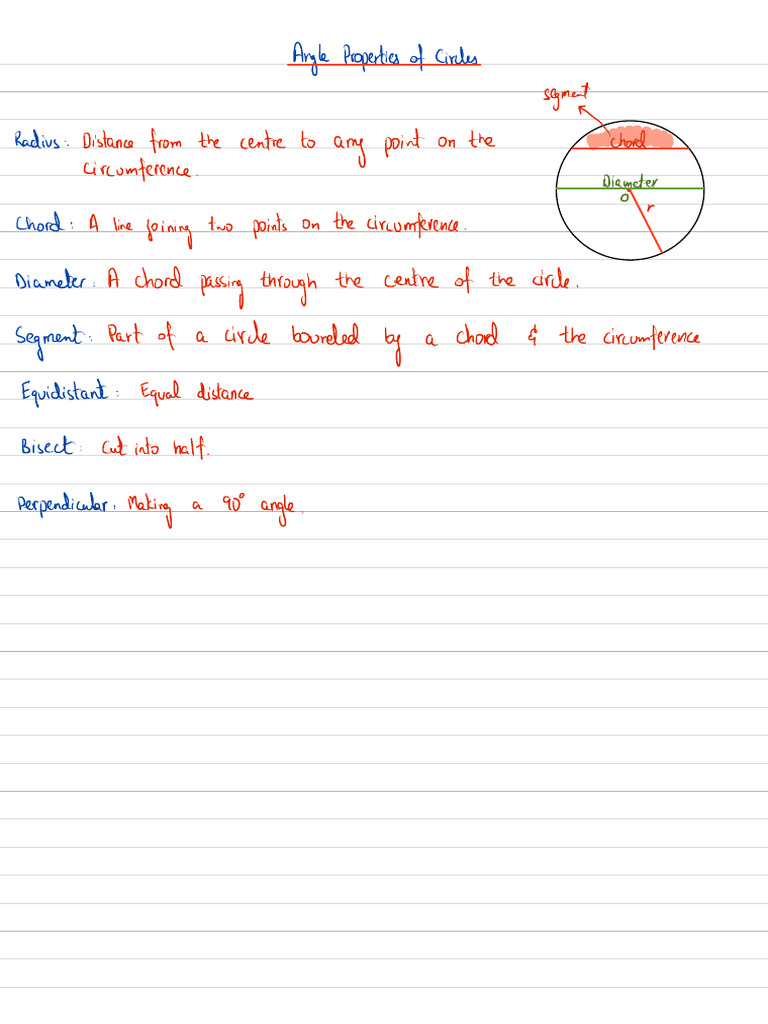 Angle Properties of Circles
segment
Radius: Distance from the centre to any point on the
circumference.
chord
Diameter
O
r
Chord: A line joining two points on the circumference.
Diameter: A chord passing through the centre of the circle.
Segment: Part of a circle bounded by a chord & the circumference
Equidistant: Equal distance
Bisect: Cut into half.
Perpendicular: Making a 90° angle.